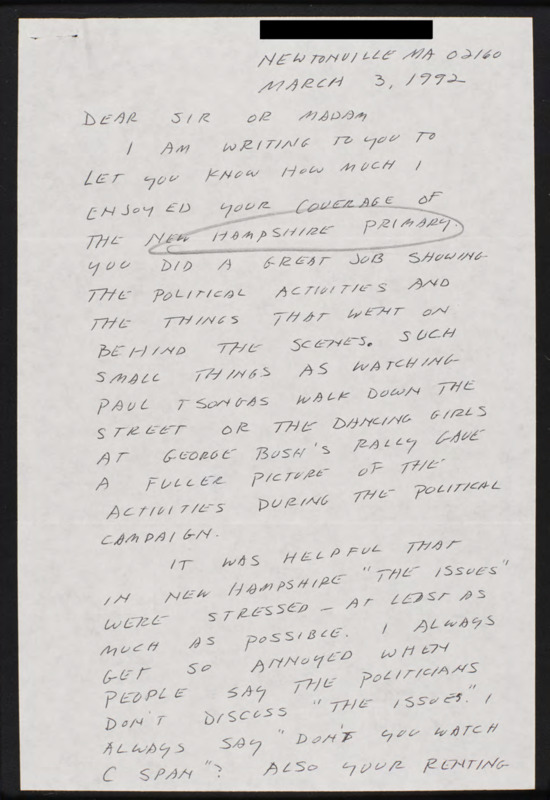 NEWTONVILLE MA 02160
MARCH 3, 1992
DEAR SIR OR MADAM
I AM WRITING TO YOU TO
LET YOU KNOW HOW MUCH I
ENJOYED YOUR COVERAGE OF
THE NEW HAMPSHIRE PRIMARY.
YOU DID A GREAT JOB SHOWING
THE POLITICAL ACTIVITIES AND
THE THINGS THAT WENT ON
BEHIND THE SCENES. SUCH
SMALL THINGS AS WATCHING
PAUL TSONGAS WALK DOWN THE
STREET OR THE DANCING GIRLS
AT GEORGE BUSH'S RALLY GAVE
A FULLER PICTURE OF THE
ACTIVITIES DURING THE POLITICAL
CAMPAIGN.
IT WAS HELPFUL THAT
IN NEW HAMPSHIRE "THE ISSUES"
WERE STRESSED - AT LEAST AS
MUCH AS POSSIBLE. I ALWAYS
GET SO ANNOYED WHEN
PEOPLE SAY THE POLITICIANS
DON'T DISCUSS "THE ISSUES". I
ALWAYS SAY "DON'T YOU WATCH
C SPAN"? ALSO YOUR RENTING